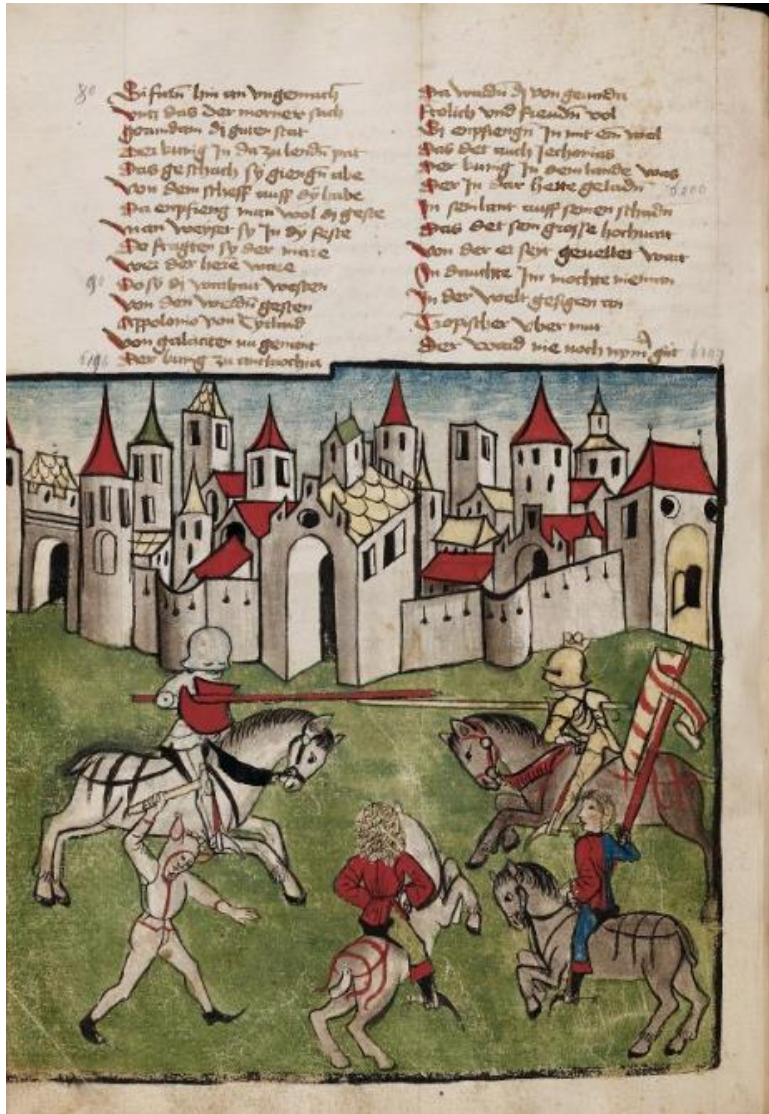 Si furn hin an ungemach
Untz das der morner sach
Der kunig In da zu lendn pat
Das geschach sy giengn abe
Von dem scheff auff dy habe
Da enpfieng man wol di geste
Man weyset sy In dy feste
Do fragten sy der mare
Wer der here ware
Do sy di west
Von den gesten
Appolonio von Tyrland
Von galacien nu genant
Der kunig zu antiochia
Da wurdn di von
Frolich und freudn vol
Si enpfiengn In mit ern wol
Das det auch Jechonias
Der kunig In dem lande was
Der In dar hette geladn
In sein lant auff seinen schadn
Das det sein grosse hochvart
Von der er seyt gevellet wart
In dauchte Im mochte nieman
In der welt gesigen an
uber mut
Der ward nie noch nymer gut